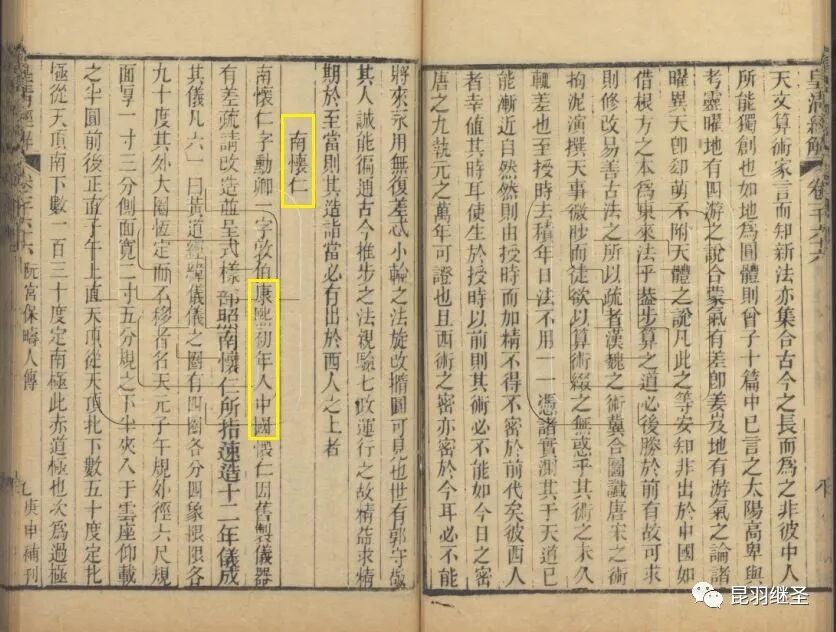 天文算術家言而知新法亦集合古今之長而爲之非彼中人
所能獨創也如地爲圓體則曾子十篇中已言之太陽高卑與
考靈曜地有四游之說合蒙氣有差卽姜岌地有游氣之論諸
曜異天卽郄萌不附天體之說凡此之等安知非出於中國如
借根方之本爲東來法乎葢步算之道必後勝於前有故可求
則修改易善古法之所以疏者漢魏之術冀合圖讖唐宋之術
拘泥演撰天事微眇而徒欲以算術綴之無惑乎其術之未久
輒差也至授時去積年日法不用一一憑諸實測其于天道已
能漸近自然然則由授時而加精不得不密於前代矣彼西人
者幸值其時耳使生於授時以前則其術必不能如今日之密
唐之九執元之萬年可證也且西術之密亦密於今耳必不能
將來永用無復差忒小輪之法旋改撱圓可見也世有郭守敬
其人誠能徧通古今推步之法親驗七政運行之故精益求精
期於至當則其造詣當必有出於西人之上者
南懷仁
南懷仁字勳卿一字敦伯康熙初年入中國懷仁因舊製儀器
有差疏請改造並呈式樣部照南懷仁所指速造十二年儀成
其儀凡六一曰黃道經緯儀儀之圈有四圈各分四象限限各
九十度其外大圈恆定而不移者名天元子午規外徑六尺規
面厚一寸三分側面寬二寸五分規之下半夾入于雲座仰載
之半圓前後正直子午上直天頂從天頂北下數五十度定北
極從天頂南下數一百三十度定南極此赤道極也次爲過極
皇清經解
阮宮保疇人傳
庚申補刊
昆羽继圣